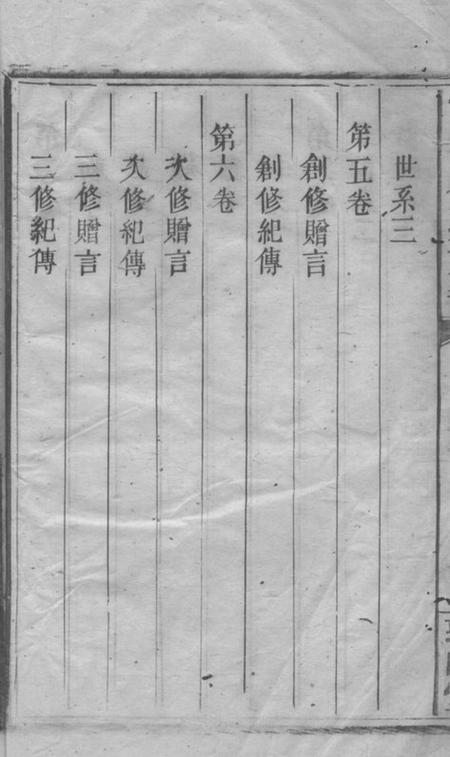 世系三
第五卷
創修贈言
創修紀傳
第六卷
次修贈言
次修紀傳
三修贈言
三修紀傳